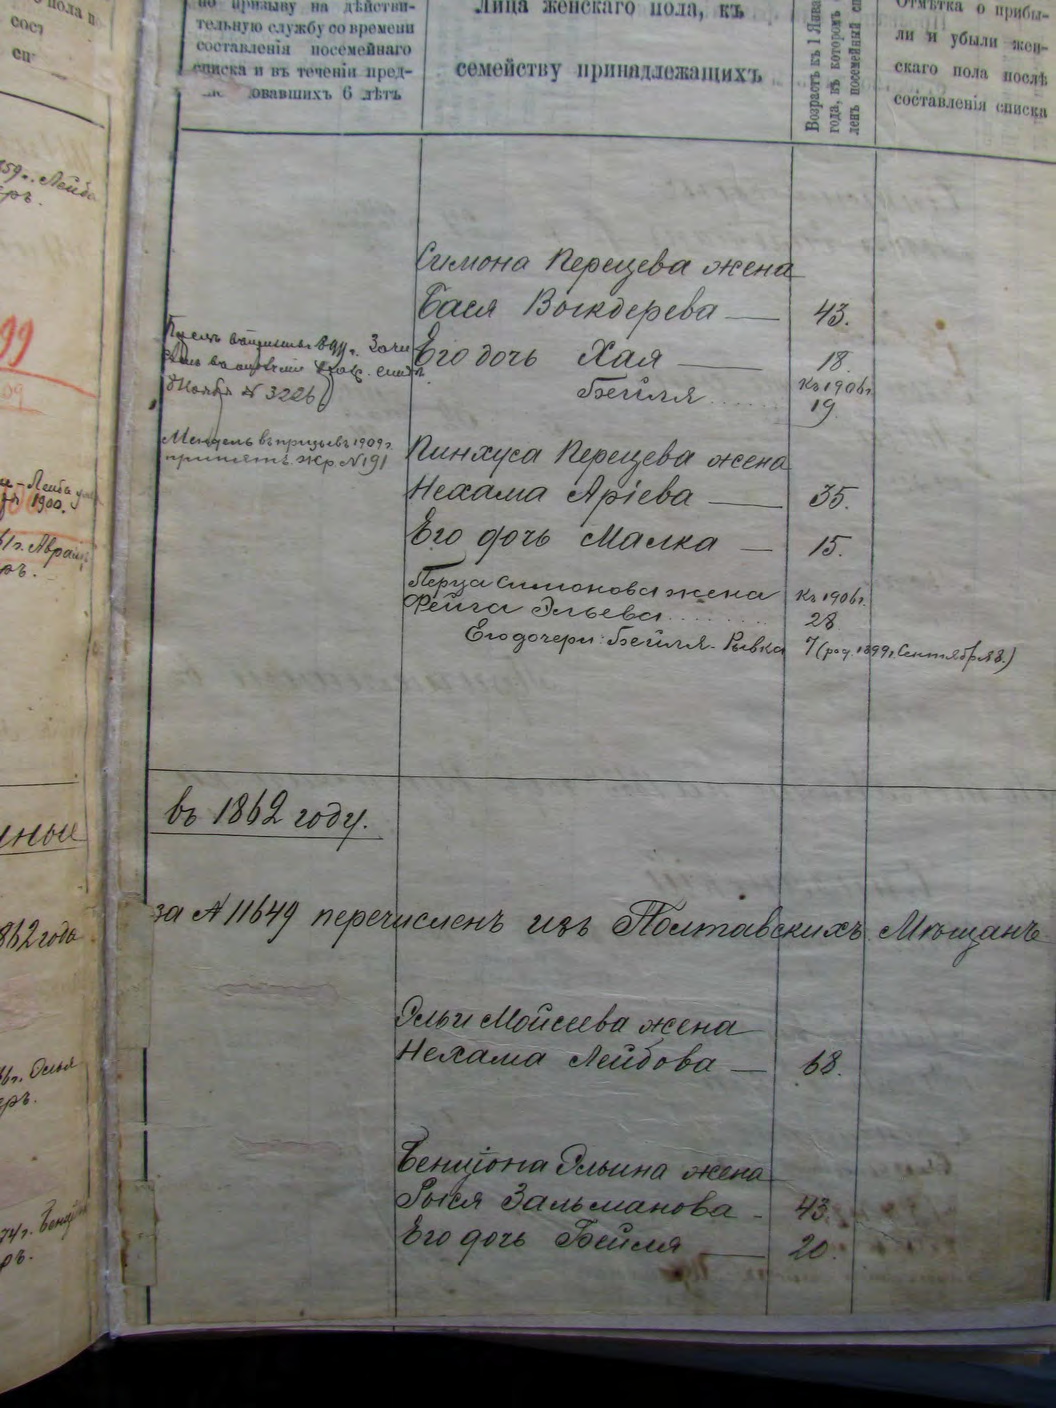 по призыву на дѣйстви-
тельную службу со времени
составленія посемейнаго
списка и въ теченіи пред-
овавшихъ 6 лѣтъ
Лица женскаго пола, къ
семейству принадлежащихъ
Возрастъ къ 1 Янва
года, въ которомъ
ленъ посемейный сп
Отмѣтка о прибы-
ли и убыли жен-
скаго пола послѣ
составленія списка
Симона Перецева жена
Бася Выкдерева — 43.
Его дочь Хая — 18.
Бейля
къ 1906 г.
19
№ 3226
Мендель въ призывъ 1909 г.
принятъ жр. № 191
Пинхуса Перецева жена
Нехама Аріева — 35.
Его дочь Малка — 15.
Перца Симонова жена
къ 1906 г.
Фейга Эльева 28
Его дочери: Бейля-Рывка 7 (род. 1899 г. Сентября 8.)
въ 1862 году.
за № 11649 перечисленъ изъ Полтавскихъ Мѣщанъ
Эльи Мойсеева жена
Нехама Лейбова — 68.
Бенціона Эльина жена
Рыся Зальманова - 43.
Его дочь Бейля — 20.
59 г. Лейба
еръ.
99
1900.
61 г. Аврам
ръ.
862 года
ръ.
74 г.
ръ.